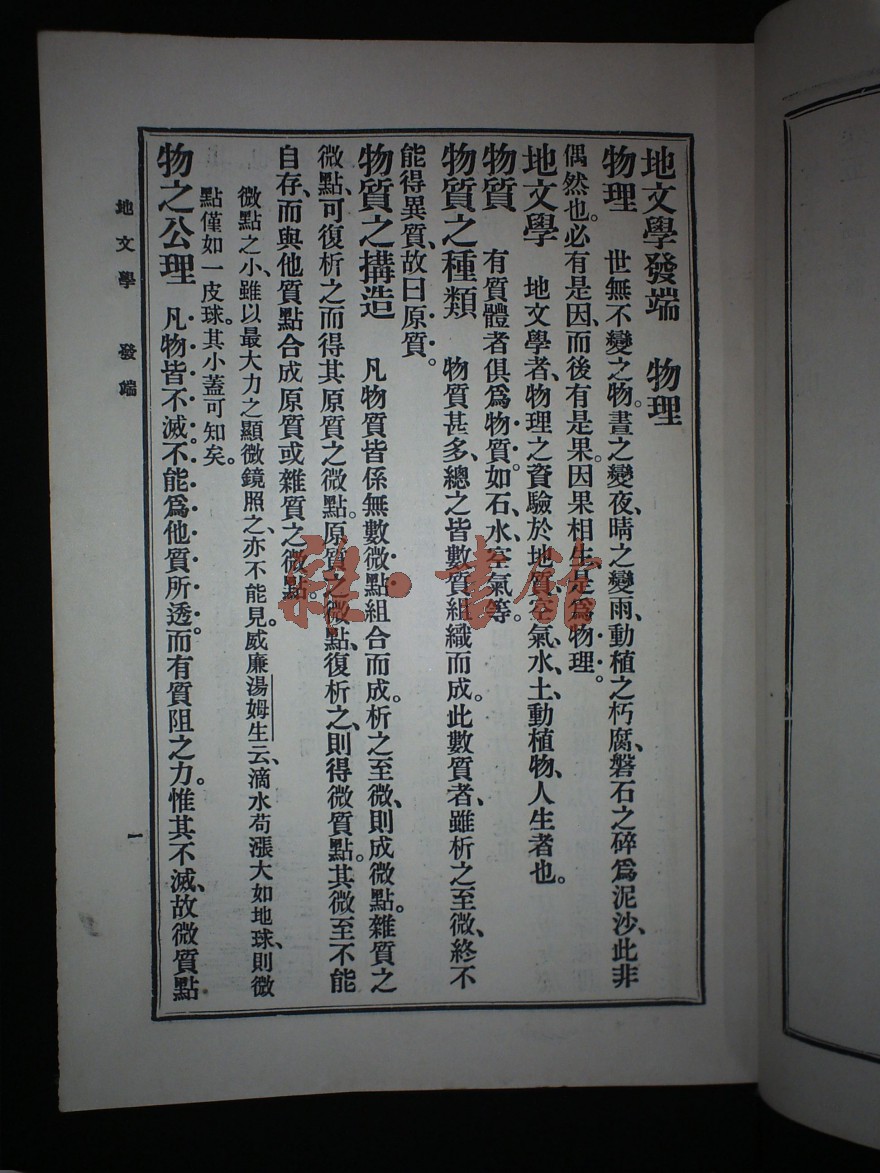 地文學發端　物理
物理　世無不變之物。晝之變夜、晴之變雨、動植之朽腐、磐石之碎爲泥沙、此非
偶然也。必有是因、而後有是果。因果相生、是爲物理。
地文學　地文學者、物理之資驗於地質、空氣、水、土、動植物、人生者也。
物質　有質體者俱爲物質。如石、水、空氣等。
物質之種類　物質甚多、總之皆數質組織而成。此數質者、雖析之至微、終不
能得異質、故曰原質。
物質之搆造　凡物質皆係無數微點組合而成。析之至微、則成微點。雜質之
微點、可復析之而得其原質之微點。原質之微點、復析之、則得微質點。其微至不能
自存、而與他質點合成原質或雜質之微點。
微點之小、雖以最大力之顯微鏡照之、亦不能見。威廉湯姆生云、滴水苟漲大如地球、則微
點僅如一皮球。其小蓋可知矣。
物之公理　凡物皆不滅。不能爲他質所透。而有質阻之力。惟其不滅、故微質點
地文學　發端
一
雜·書館